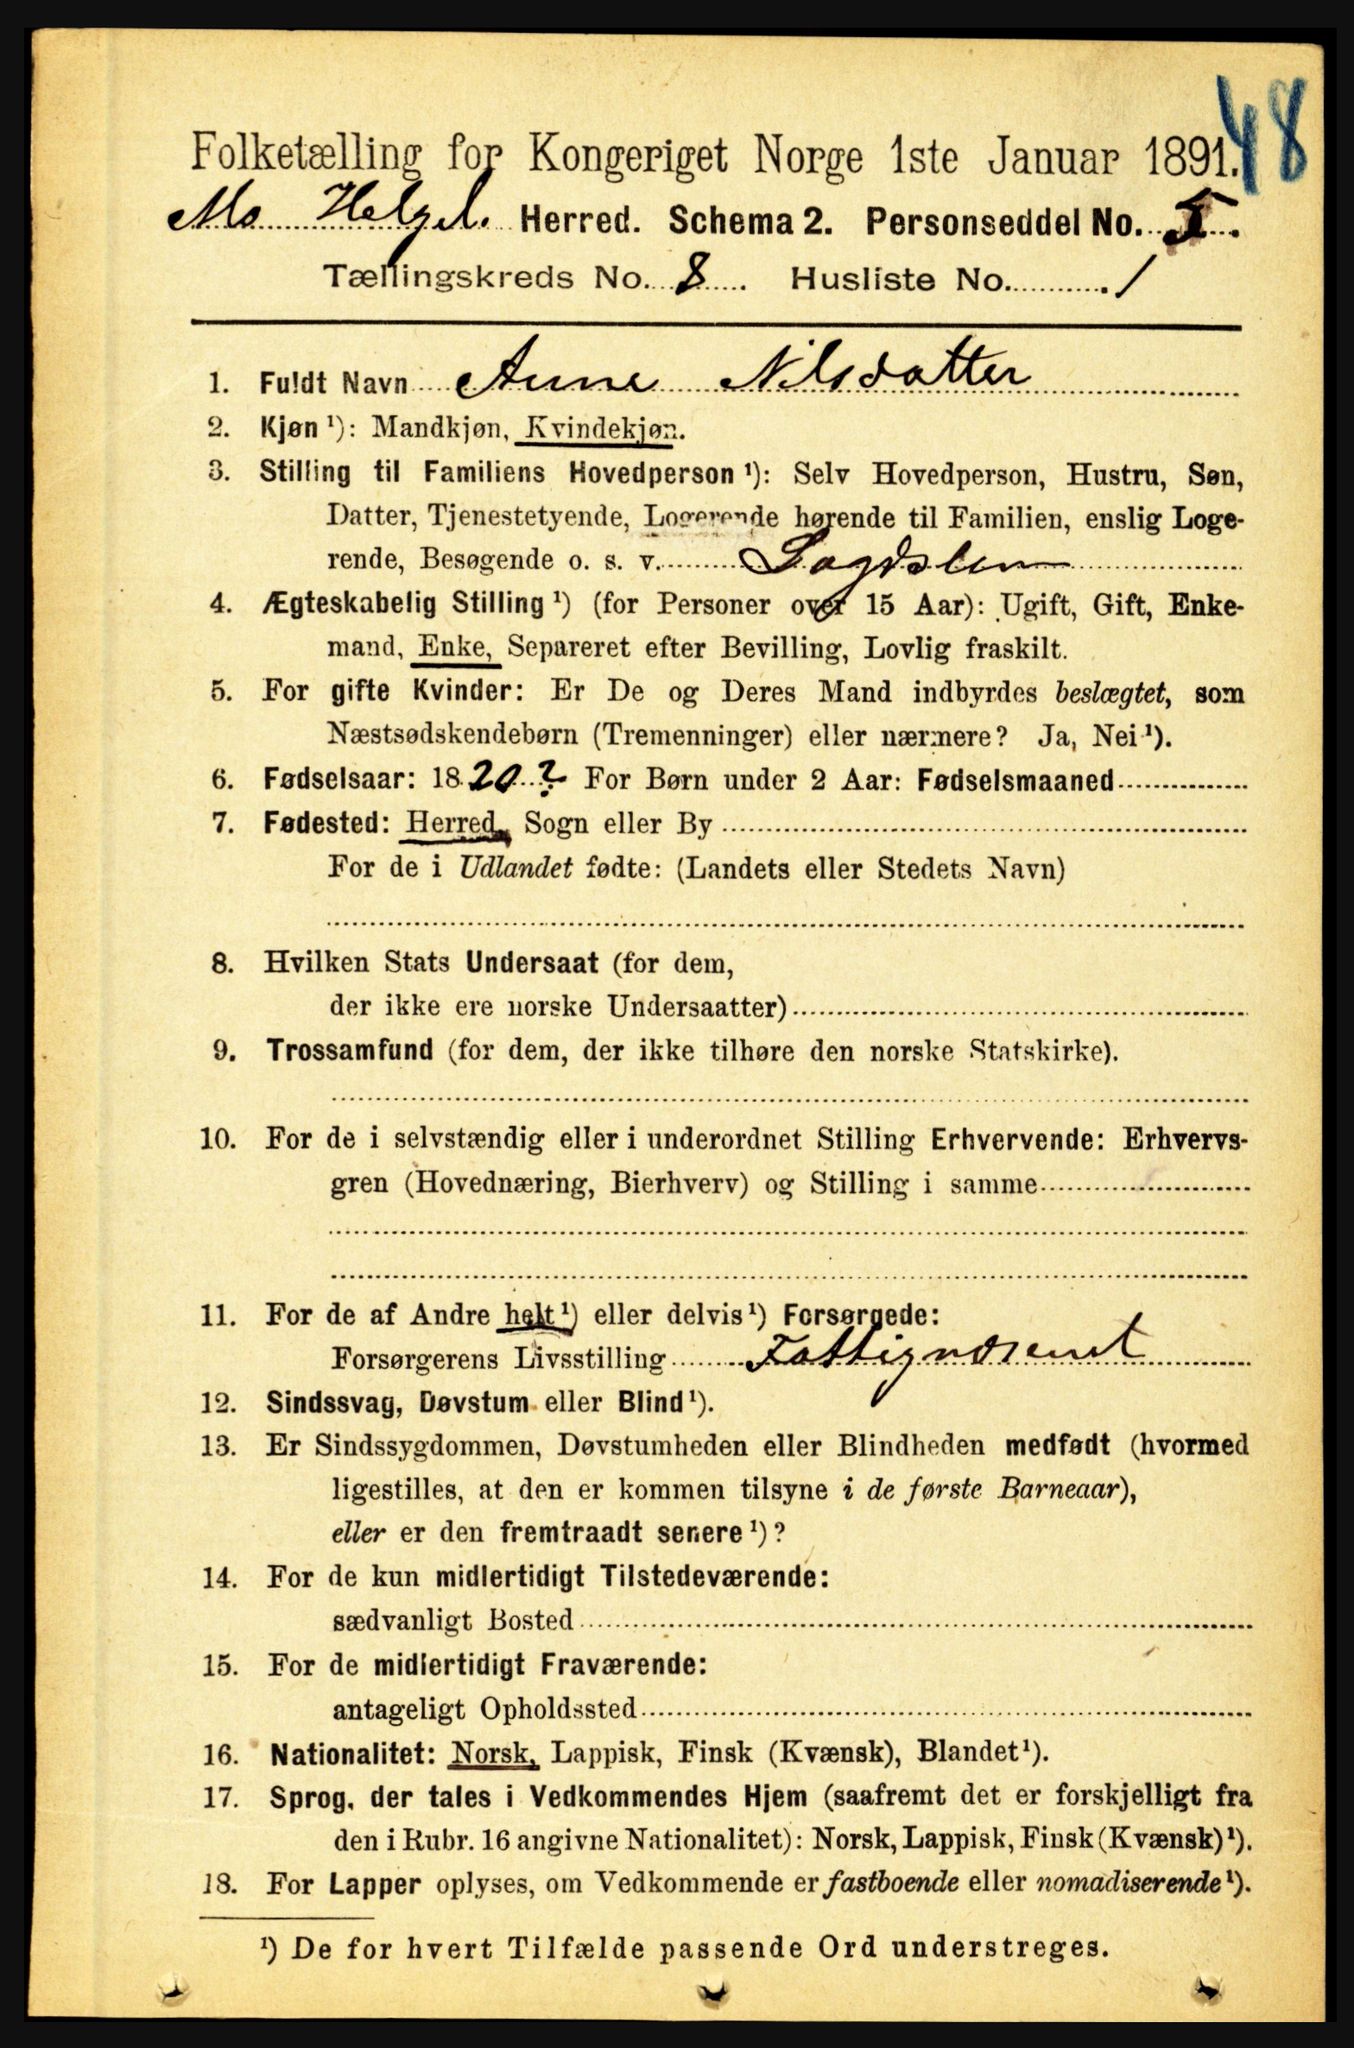 48
Folketælling for Kongeriget Norge 1ste Januar 1891.
Mo Helgel. Herred. Schema 2. Personseddel No. 5.
Tællingskreds No. 8. Husliste No. 1
1. Fuldt Navn Anne Nilsdatter
2. Kjøn ¹): Mandkjøn, Kvindekjøn.
3. Stilling til Familiens Hovedperson ¹): Selv Hovedperson, Hustru, Søn,
Datter, Tjenestetyende, Logerende hørende til Familien, enslig Loge-
rende, Besøgende o. s. v. Lægdslem
4. Ægteskabelig Stilling ¹) (for Personer over 15 Aar): Ugift, Gift, Enke-
mand, Enke, Separeret efter Bevilling, Lovlig fraskilt.
5. For gifte Kvinder: Er De og Deres Mand indbyrdes beslægtet, som
Næstsødskendebørn (Tremenninger) eller nærmere? Ja, Nei ¹).
6. Fødselsaar: 1820? For Børn under 2 Aar: Fødselsmaaned
7. Fødested: Herred, Sogn eller By
For de i Udlandet fødte: (Landets eller Stedets Navn)
8. Hvilken Stats Undersaat (for dem,
der ikke ere norske Undersaatter)
9. Trossamfund (for dem, der ikke tilhøre den norske Statskirke).
10. For de i selvstændig eller i underordnet Stilling Erhvervende: Erhvervs-
gren (Hovednæring, Bierhverv) og Stilling i samme
11. For de af Andre helt ¹) eller delvis ¹) Forsørgede:
Forsørgerens Livsstilling Fattigvæsenet
12. Sindssvag, Døvstum eller Blind ¹).
13. Er Sindssygdommen, Døvstumheden eller Blindheden medfødt (hvormed
ligestilles, at den er kommen tilsyne i de første Barneaar),
eller er den fremtraadt senere ¹)?
14. For de kun midlertidigt Tilstedeværende:
sædvanligt Bosted
15. For de midlertidigt Fraværende:
antageligt Opholdssted
16. Nationalitet: Norsk, Lappisk, Finsk (Kvænsk), Blandet ¹).
17. Sprog, der tales i Vedkommendes Hjem (saafremt det er forskjelligt fra
den i Rubr. 16 angivne Nationalitet): Norsk, Lappisk, Finsk (Kvænsk) ¹).
18. For Lapper oplyses, om Vedkommende er fastboende eller nomadiserende ¹).
¹) De for hvert Tilfælde passende Ord understreges.